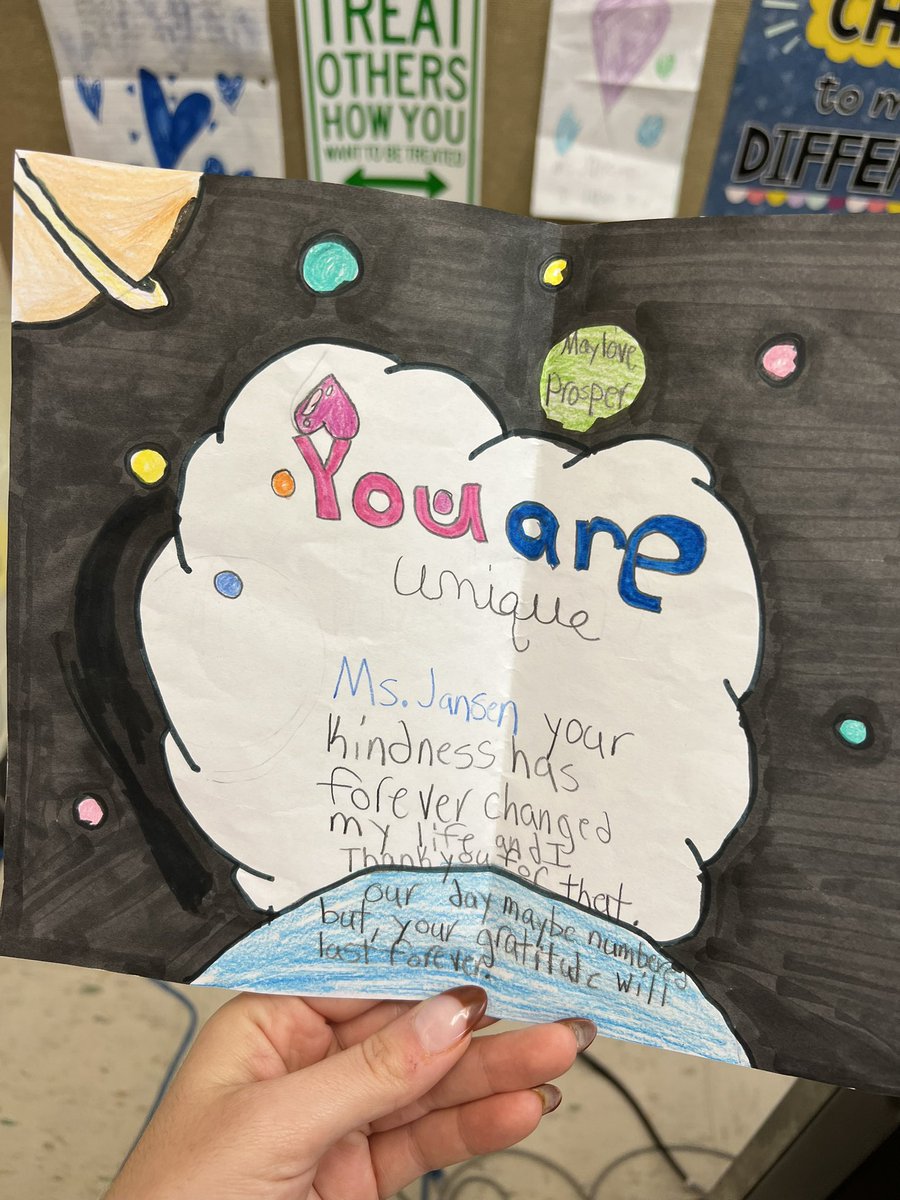 TREAT
OTHERS
HOW YOU
WANT TO BE TREATED
to m
DIFFE
May love
prosper
You are
unique
Ms. Jansen your
kindness has
forever changed
my life and I
Thank you for that.
our day maybe numbered
but, your gratitude will
last forever.